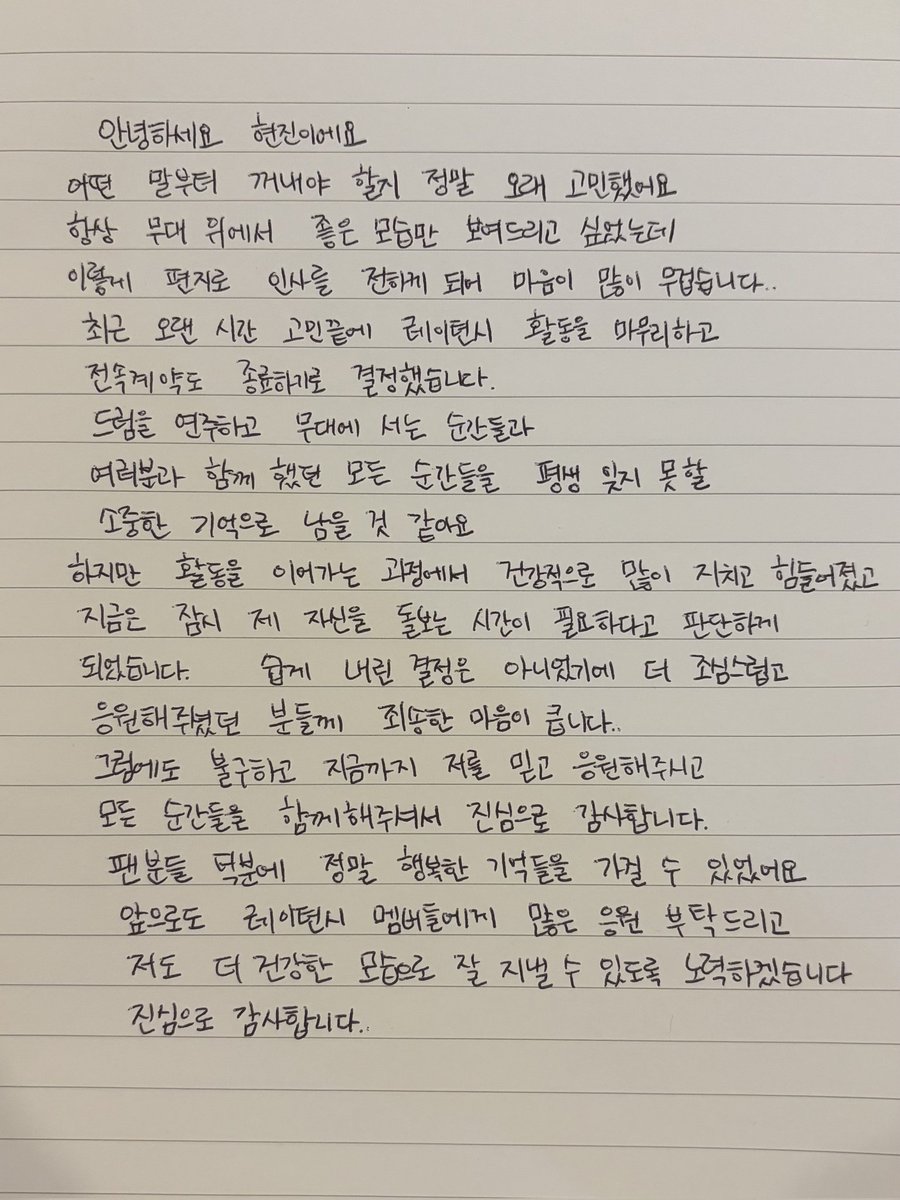 안녕하세요 현진이에요
어떤 말부터 꺼내야 할지 정말 오래 고민했어요
항상 무대 위에서 좋은 모습만 보여드리고 싶었는데
이렇게 편지로 인사를 전하게 되어 마음이 많이 무겁습니다..
최근 오랜 시간 고민끝에 레이턴시 활동을 마무리하고
전속계약도 종료하기로 결정했습니다.
드럼을 연주하고 무대에 서는 순간들과
여러분과 함께 했던 모든 순간들을 평생 잊지 못할
소중한 기억으로 남을 것 같아요
하지만 활동을 이어가는 과정에서 건강적으로 많이 지치고 힘들어졌고
지금은 잠시 제 자신을 돌보는 시간이 필요하다고 판단하게
되었습니다. 쉽게 내린 결정은 아니었기에 더 조심스럽고
응원해주셨던 분들께 죄송한 마음이 큽니다..
그럼에도 불구하고 지금까지 저를 믿고 응원해주시고
모든 순간들을 함께해주셔서 진심으로 감사합니다.
팬분들 덕분에 정말 행복한 기억들을 가질 수 있었어요
앞으로도 레이턴시 멤버들에게 많은 응원 부탁드리고
저도 더 건강한 모습으로 잘 지낼 수 있도록 노력하겠습니다
진심으로 감사합니다..